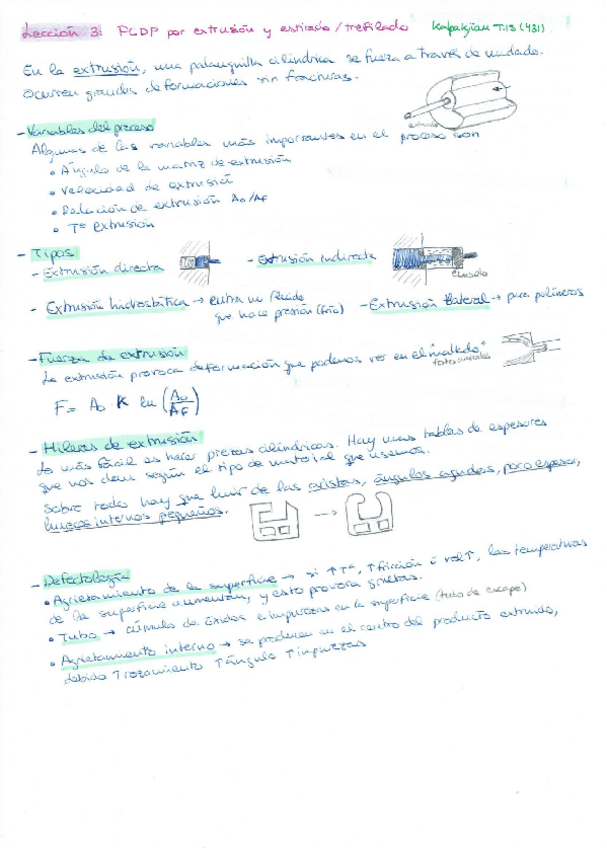 Lección 3: PCDP por extrusión y estirado/trefilado Kalpakjian T.15 (431)
En la extrusión, una palanquilla cilíndrica se fuerza a través de un dado.
Ocurren grandes deformaciones sin fracturas.
- Variables del proceso
Algunas de las variables más importantes en el proceso son
• Ángulo de la matriz de extrusión
• Velocidad de extrusión
• Relación de extrusión Ao/Af
• Tª extrusión
- Tipos
- Extrusión directa - Extrusión indirecta
- Extrusión hidrostática → entra un fluido
que hace presión (frío) - Extrusión lateral → para polímeros
- Fuerza de extrusión
La extrusión provoca deformación que podemos ver en el mallado
F = Ao K ln (Ao/AF)
- Hileras de extrusión
Lo más fácil es hacer piezas cilíndricas. Hay unas tablas de espesores
que nos dan según el tipo de material que usemos.
Sobre todo hay que huir de las aristas, ángulos agudos, poco espesor,
huecos internos pequeños.
- Defectología
• Agrietamiento de la superficie → si ↑Tª, ↑fricción ó vel↑, las temperaturas
de la superficie aumentan, y esto provoca grietas.
• Tubo → cúmulo de óxidos e impurezas en la superficie (tubo de escape)
• Agrietamiento interno → se producen en el centro del producto extruido,
debido ↑rozamiento ↑ángulo ↑impurezas